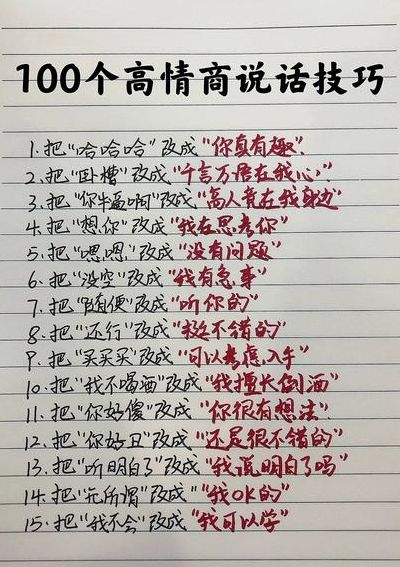 100个高情商说话技巧
1.把"哈哈哈"改成"你真有趣"
2.把"卧槽"改成"千言万语在我心"
3.把"你牛逼啊"改成"高人竟在我身边"
4.把"想你"改成"我在思考你"
5.把"嗯嗯"改成"没有问题"
6.把"没空"改成"我有急事"
7.把"随便"改成"听你的"
8.把"还行"改成"挺不错的"
9.把"买买买"改成"可以考虑入手"
10.把"我不喝酒"改成"我擅长倒酒"
11.把"你好傻"改成"你很有想法"
12.把"你好丑"改成"还是很不错的"
13.把"听明白了"改成"我说明白了吗"
14.把"无所谓"改成"我OK的"
15.把"我不会"改成"我可以学"